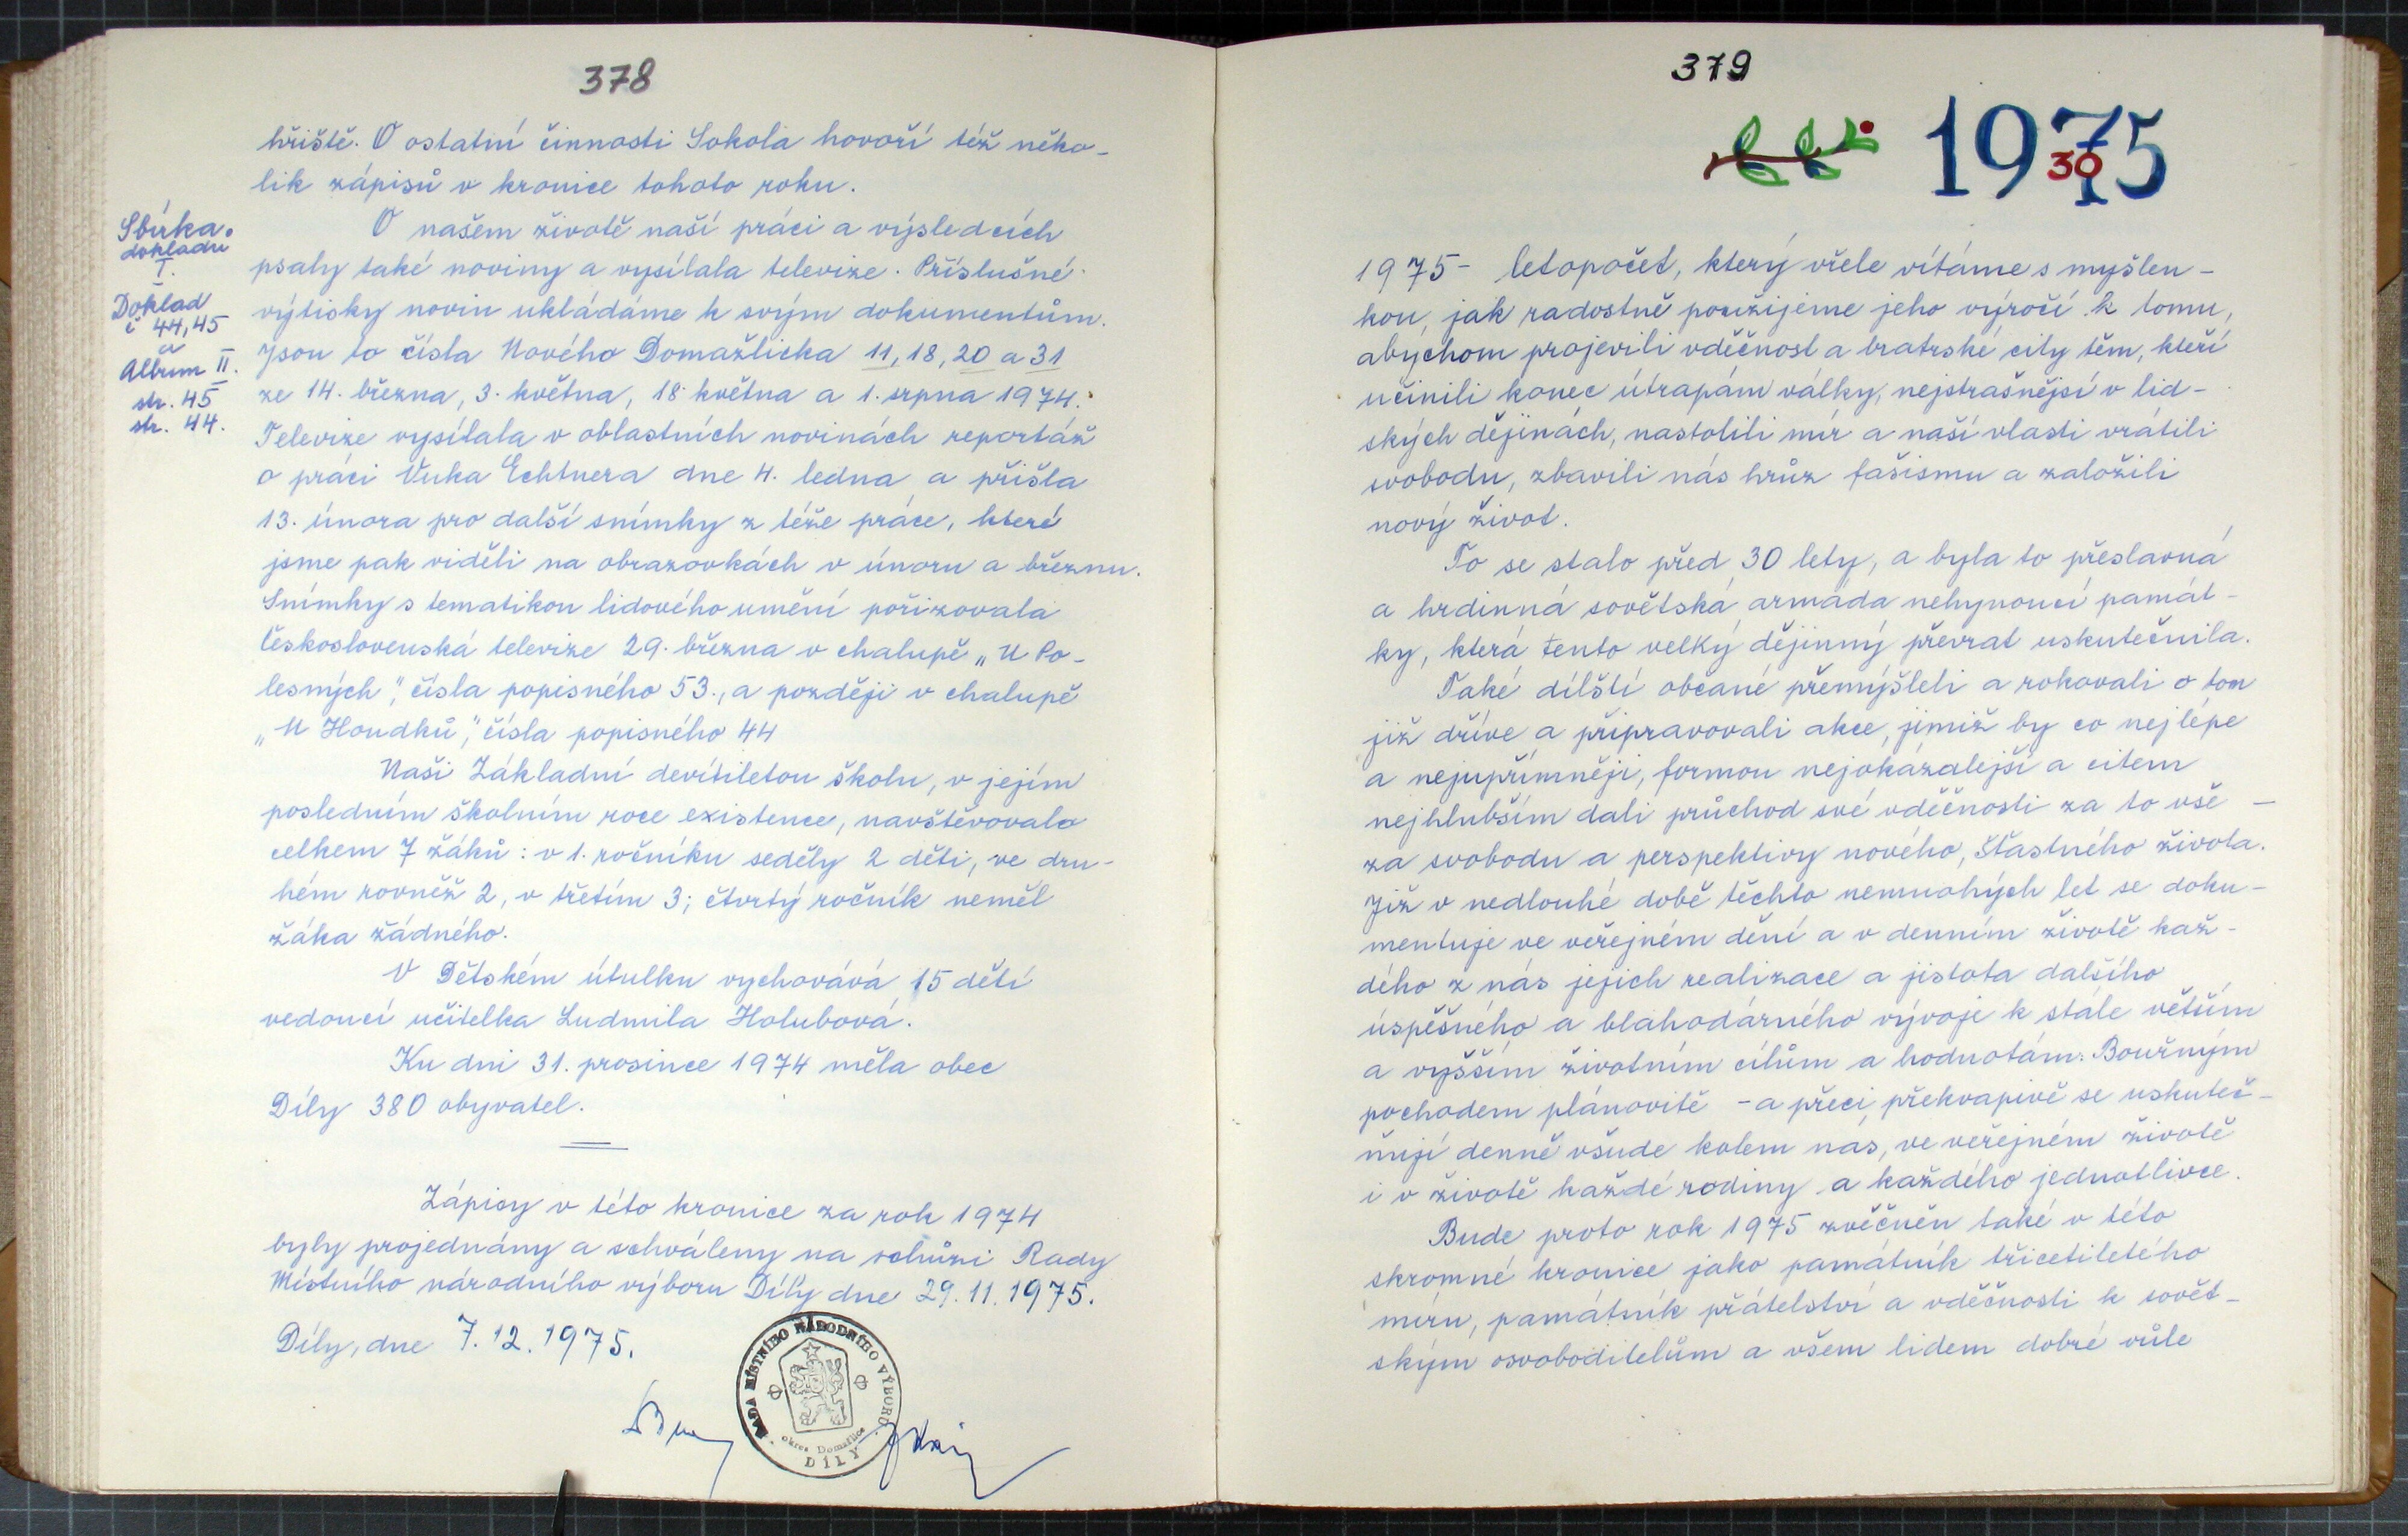 378
hřiště. O ostatní činnosti Sokola hovoří též něko-
lik zápisů v kronice tohoto roku.
O našem životě naší práci a výsledcích
psaly také noviny a vysílala televize. Příslušné
výtisky novin ukládáme k svým dokumentům.
Jsou to čísla Nového Domažlicka 11, 18, 20 a 31
ze 14. března, 3. května, 18. května a 1. srpna 1974.
Televize vysílala v oblastních novinách reportáž
o práci Vuka Echtnera dne 4. ledna a přišla
13. února pro další snímky z téže práce, které
jsme pak viděli na obrazovkách v únoru a březnu.
Snímky s tematikou lidového umění pořizovala
Československá televize 29. března v chalupě „U Po-
lesných“, čísla popisného 53., a později v chalupě
„U Houdků“, čísla popisného 44
Naši Základní devítiletou školu, v jejím
posledním školním roce existence, navštěvovalo
celkem 7 žáků: v 1. ročníku seděly 2 děti, ve dru-
hém rovněž 2, v třetím 3; čtvrtý ročník neměl
žáka žádného.
V Dětském útulku vychovává 15 dětí
vedoucí učitelka Ludmila Holubová.
Ku dni 31. prosince 1974 měla obec
Díly 380 obyvatel.
Zápisy v této kronice za rok 1974
byly projednány a schváleny na schůzi Rady
Místního národního výboru Díly dne 29. 11. 1975.
Díly, dne 7. 12. 1975.
RADA MÍSTNÍHO NÁRODNÍHO VÝBORU
okres Domažlice
DÍLY
Sbírka
dokladu
I.
Doklad
č 44, 45
a
Album II.
str. 45
str. 44.
379
1975
30
1975 - letopočet, který vřele vítáme s myšlen-
kou, jak radostně použijeme jeho výročí k tomu,
abychom projevili vděčnost a bratrské city těm, kteří
učinili konec útrapám války, nejstrašnější v lid-
ských dějinách, nastolili mír a naší vlasti vrátili
svobodu, zbavili nás hrůz fašismu a založili
nový život.
To se stalo před 30 lety, a byla to přeslavná
a hrdinná sovětská armáda nehynoucí památ-
ky, která tento velký dějinný převrat uskutečnila.
Také dílští občané přemýšleli a rokovali o tom
již dříve a připravovali akce, jimiž by co nejlépe
a nejupřímněji, formou nejokázalejší a citem
nejhlubším dali průchod své vděčnosti za to vše -
za svobodu a perspektivy nového, šťastného života.
Již v nedlouhé době těchto nemnohých let se doku-
mentuje ve veřejném dění a v denním životě kaž-
dého z nás jejich realizace a jistota dalšího
úspěšného a blahodárného vývoje k stále větším
a vyšším životním cílům a hodnotám. Bouřným
pochodem plánovitě - a přeci překvapivě se uskuteč-
ňují denně všude kolem nás, ve veřejném životě
i v životě každé rodiny a každého jednotlivce.
Bude proto rok 1975 zvěčněn také v této
skromné kronice jako památník třicetiletého
míru, památník přátelství a vděčnosti k sovět-
ským osvoboditelům a všem lidem dobré vůle